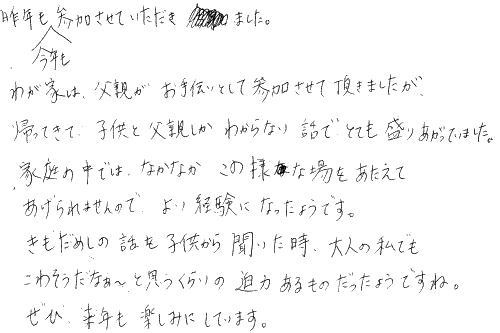 昨年も参加させていただきました。
今年も
わが家は、父親がお手伝いとして参加させて頂きましたが、
帰ってきて、子供と父親しかわからない話でとても盛りあがっていました。
家庭の中では、なかなかこの様な場をあたえて
あげられませんので、よい経験になったようです。
きもだめしの話を子供から聞いた時、大人の私でも
こわそうだなぁ~と思うくらいの迫力あるものだったようですね。
ぜひ、来年も楽しみにしています。